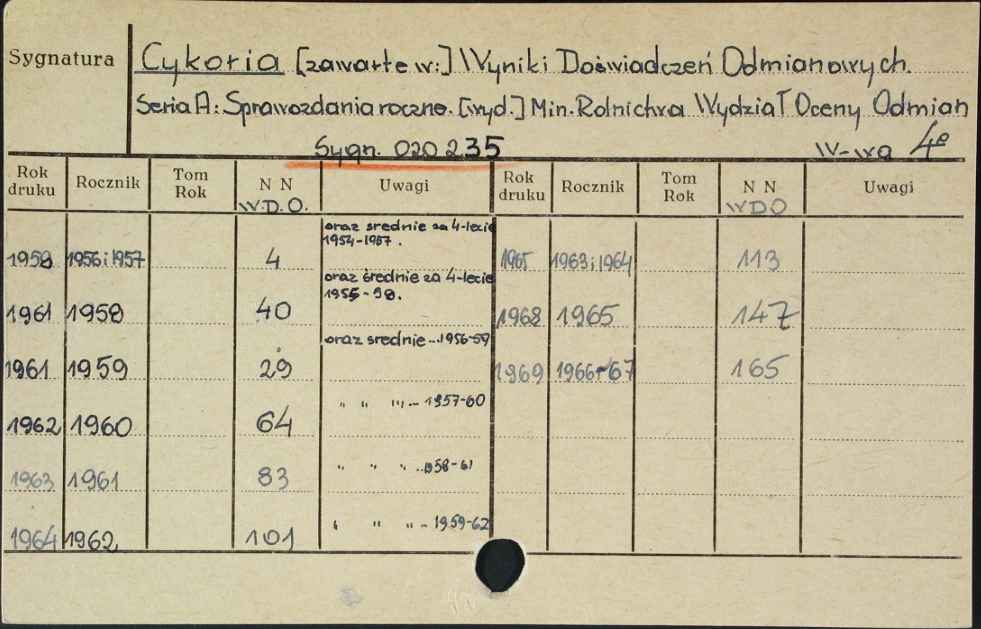 Sygnatura Cykoria [zawarte w:] Wyniki Doświadczeń Odmianowych.
Seria A: Sprawozdania roczne. [wyd.] Min. Rolnictwa Wydział Oceny Odmian
Sygn. 020235 W-wa 4°
Rok druku Rocznik Tom Rok N N W.D.O. Uwagi Rok druku Rocznik Tom Rok N N WDO Uwagi
1958 1956 i 1957 4 oraz srednie za 4-lecie 1954-1957. 1965 1963 i 1964 113
1961 1958 40 oraz średnie za 4-lecie 1955-58. 1968 1965 147
1961 1959 29 oraz srednie...1956-59 1969 1966-67 165
1962 1960 64 " " "...1957-60
1963 1961 83 " " "...1958-61
1964 1962 101 " " "-1959-62